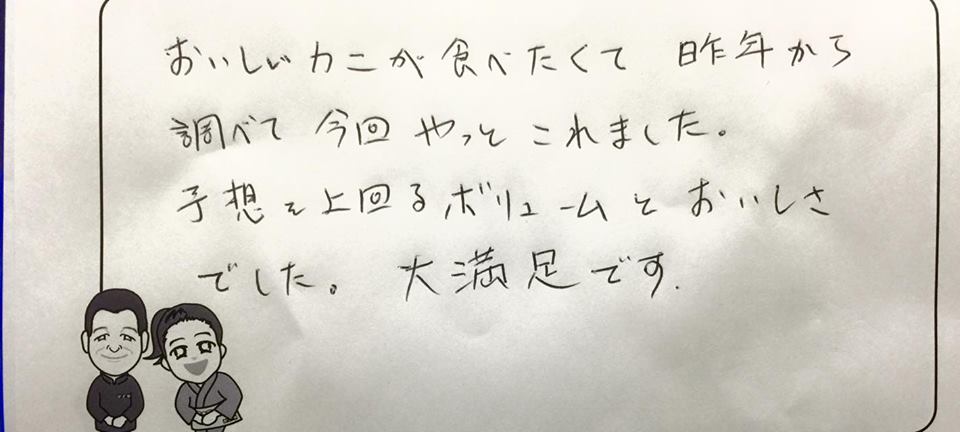 おいしいカニが食べたくて 昨年から
調べて 今回 やっと これました。
予想を上回るボリュームと おいしさ
でした。 大満足です.